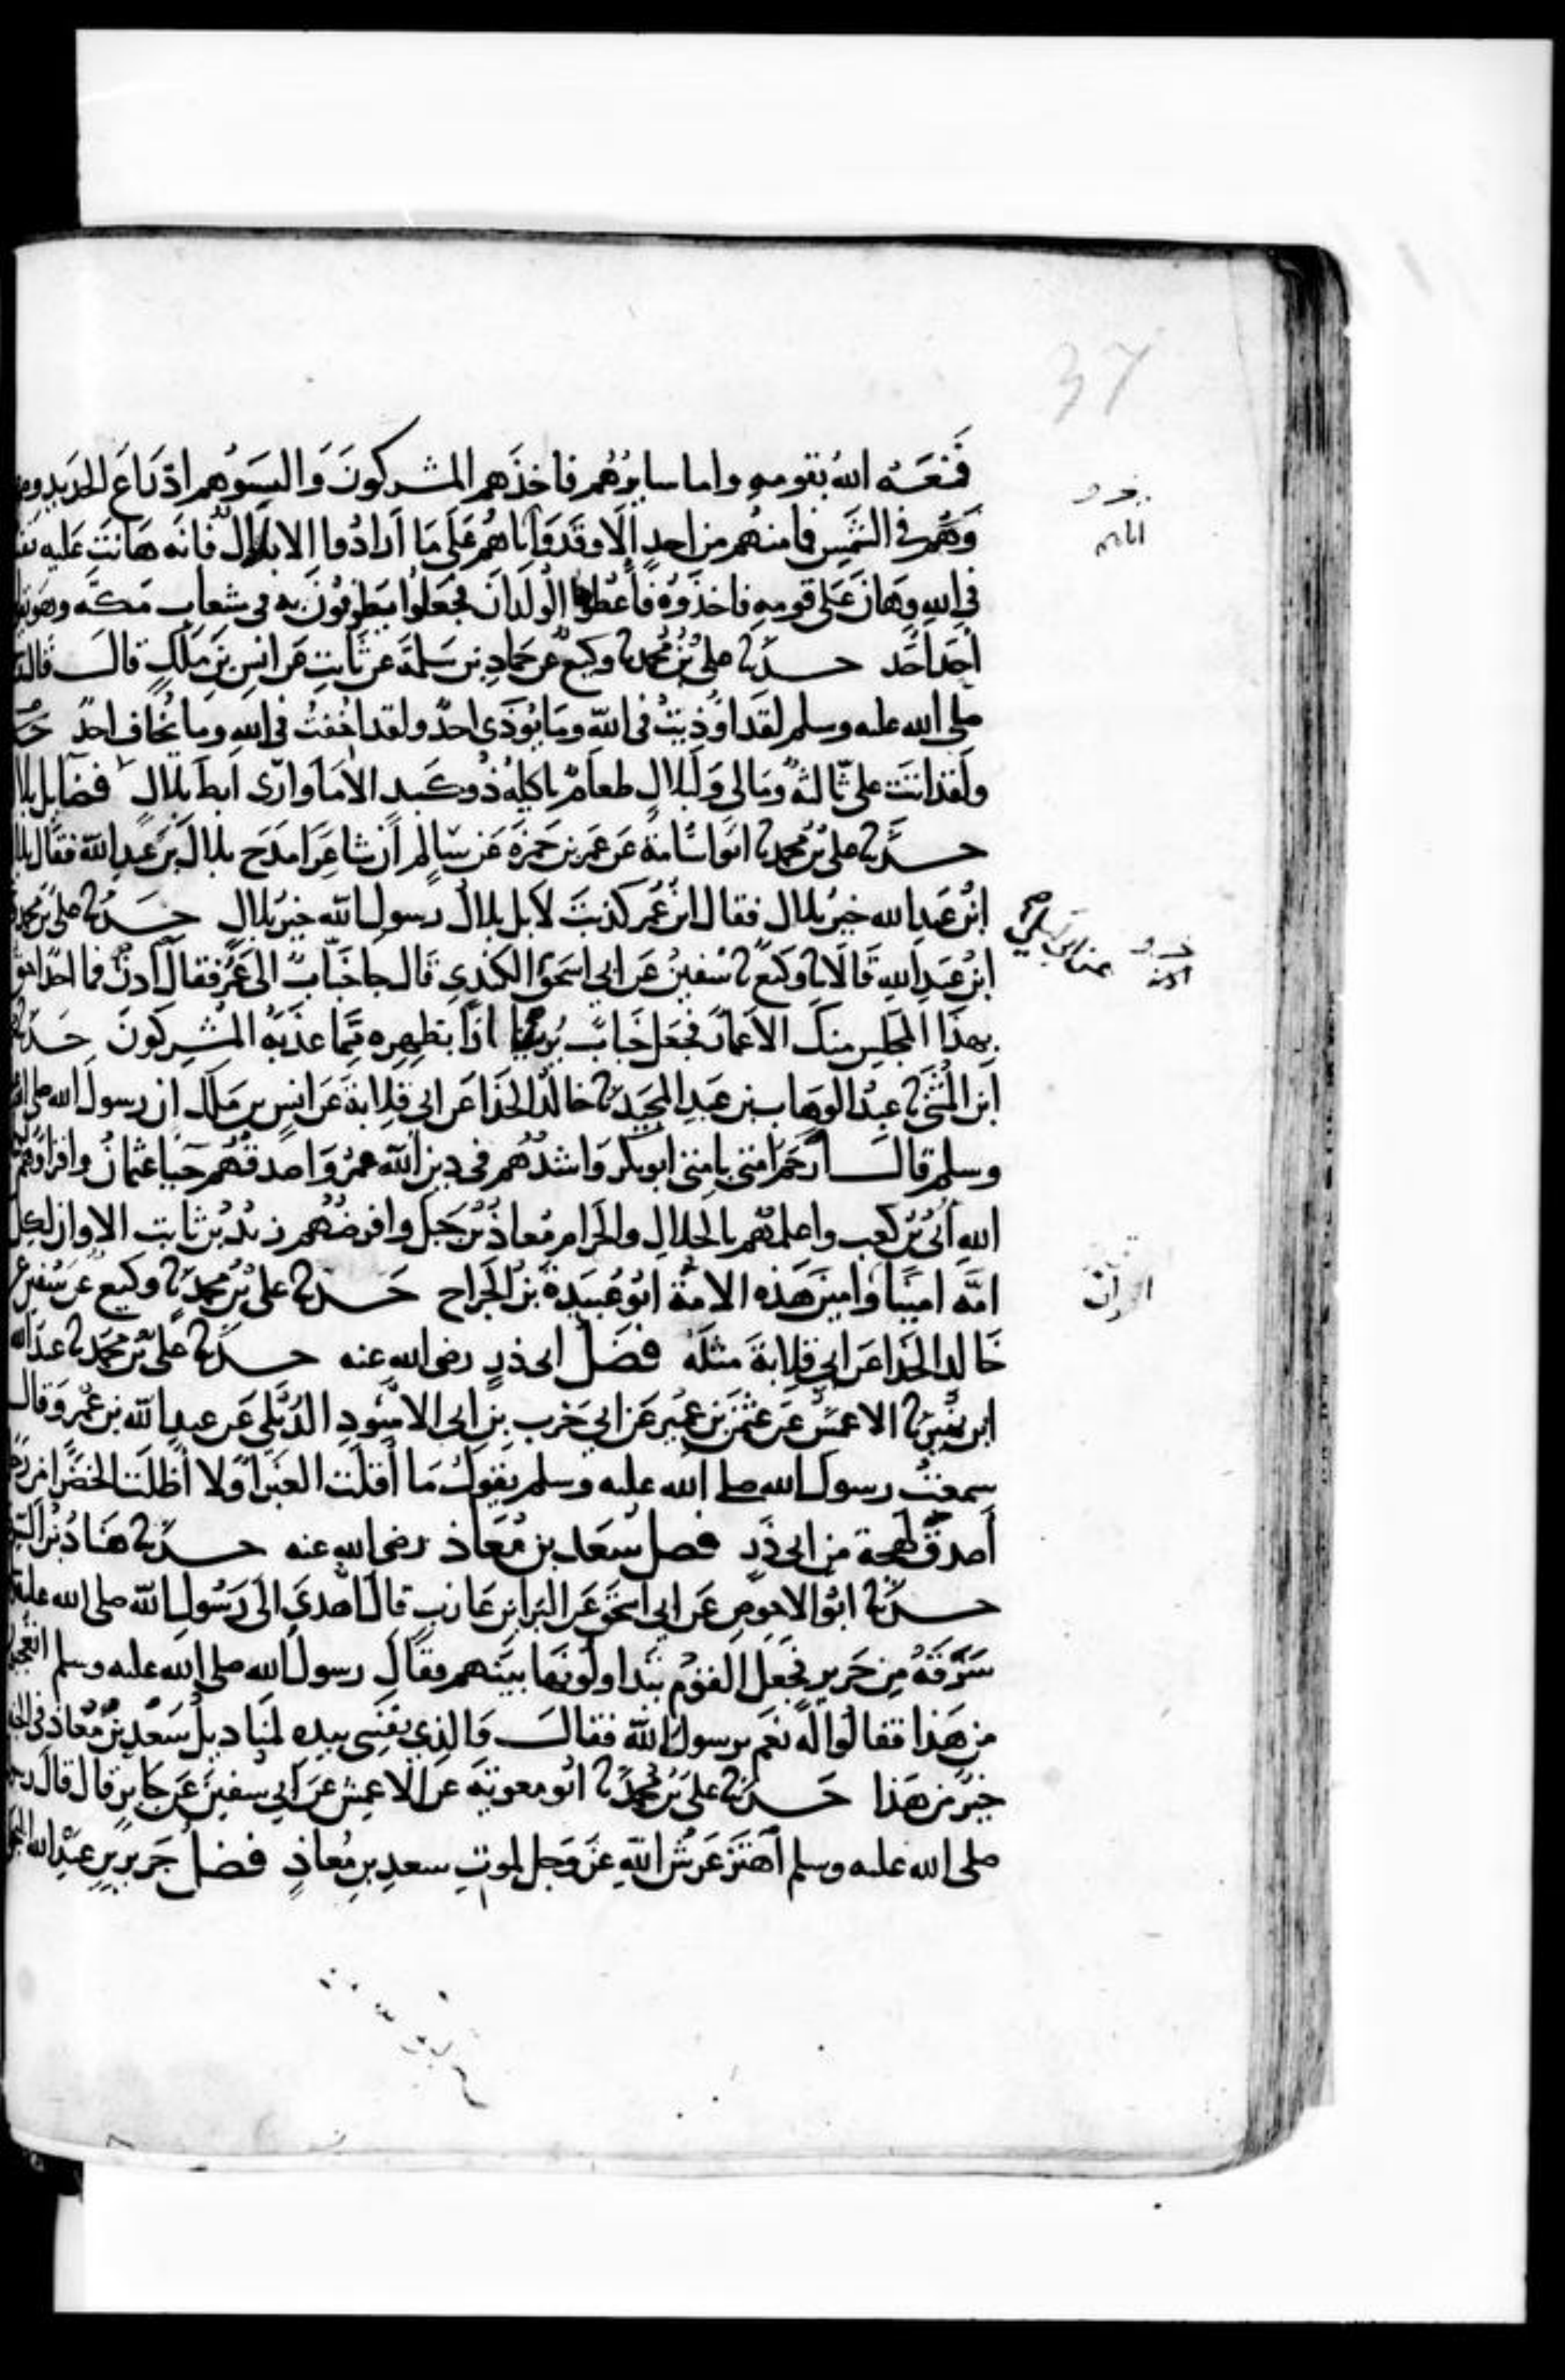 37
فمنعه الله بقومه واما سايرهم فاخذهم المشركون والبسوهم ادراع الحديد
وهم في الشمس فما منهم من احد الا وقد واتاهم على ما ارادوا الا بلال فانه هانت عليه
في الله وهان على قومه فاخذوه فاعطوه الولدان فجعلوا يطوفون به في شعاب مكه وهو
احد احد حدثنا علي بن محمد ثنا وكيع عن حماد بن سلمة عن ثابت عن انس بن ملك قال قال
صلى الله عليه وسلم لقد اوذيت في الله وما يوذى احد ولقد اخفت في الله وما يخاف احد
ولقد اتت علي ثالثة ومالي ولبلال طعام ياكله ذو كبد الا ما وارى ابط بلال فضايل بلال
حدثنا علي بن محمد ثنا ابو اسامة عن عمر بن حمزة عن سالم ان شاعرا مدح بلال بن عبد الله فقال بلال
ابن عبد الله خير بلال فقال ابن عمر كذبت لا بل بلال رسول الله خير بلال حدثنا علي بن محمد
ابن عبد الله قالا ثنا وكيع ثنا سفين عن ابي اسحق الكندي قال جا خباب الى عمر فقال ادن فما احد احق
بهذا المجلس منك الا عمار فجعل خباب يريه اثارا بظهره مما عذبه المشركون حدثنا
ابن المثنى ثنا عبد الوهاب بن عبد المجيد ثنا خالد الحذا عن ابي قلابة عن انس بن ملك ان رسول الله صلى الله
وسلم قال ارحم امتي بامتي ابو بكر واشدهم في دين الله عمر واصدقهم حيا عثمان واقراوهم
الله ابي بن كعب واعلمهم بالحلال والحرام معاذ بن جبل وافرضهم زيد بن ثابت الا وان لكل
امه امينا وامين هذه الامة ابو عبيدة بن الجراح حدثنا علي بن محمد ثنا وكيع عن سفين عن
خالد الحذا عن ابي قلابة مثله فضل ابي ذر رضى الله عنه حدثنا علي بن محمد ثنا عبد الله
ابن نمير ثنا الاعمش عن عثمن بن عمير عن ابي حرب بن ابي الاسود الديلي عن عبد الله بن عمرو قال
سمعت رسول الله صلى الله عليه وسلم يقول ما اقلت الغبرا ولا اظلت الخضرا من رجل
اصدق لهجة من ابي ذر فضل سعد بن معاذ رضى الله عنه حدثنا هناد بن السري
حدثنا ابو الاحوص عن ابي اسحق عن البرا بن عازب قال اهدي الى رسول الله صلى الله عليه
سرقة من حرير فجعل القوم يتداولونها بينهم فقال رسول الله صلى الله عليه وسلم اتعجبون
من هذا فقالوا له نعم يرسول الله فقال والذي نفسي بيده لمناديل سعد بن معاذ في الجنة
خير من هذا حدثنا علي بن محمد ثنا ابو معوية عن الاعمش عن ابي سفين عن جابر قال قال رسول
صلى الله عليه وسلم اهتز عرش الله عز وجل لموت سعد بن معاذ فضل جرير بن عبد الله البجلي